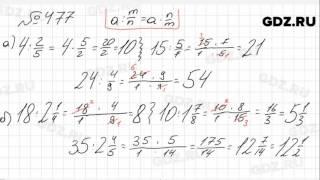 №477 a : m/n = a · n/m GDZ.RU
а) 4 : 2/5 = 4 · 5/2 = 20/2 = 10 } 15 : 5/7 = 15 · 7/1 · 5 = 21
24 : 4/9 = 24 · 9/1 · 4 = 54
б) 18 : 2 1/4 = 18 · 4/1 · 9 = 8 } 10 : 1 7/8 = 10 · 8/1 · 15 = 16/3 = 5 1/3
35 : 2 4/5 = 35 · 5/1 · 14 = 175/14 = 12 7/14 = 12 1/2